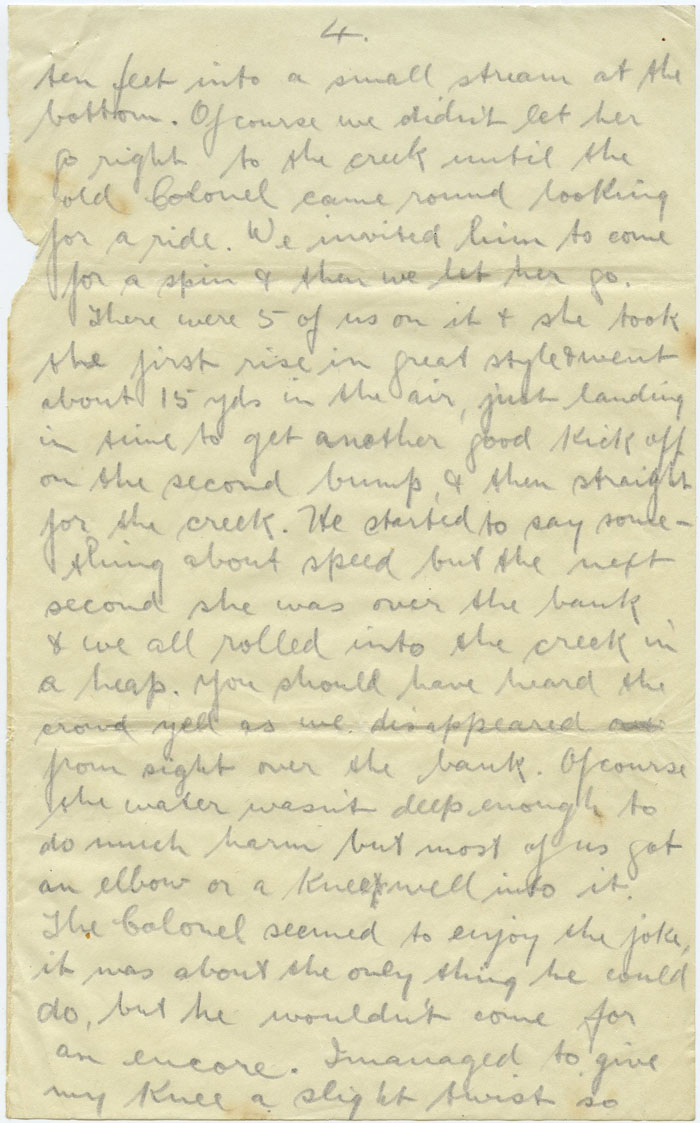 4.
ten feet into a small stream at the
bottom. Of course we didn't let her
go right to the creek until the
old Colonel came round looking
for a ride. We invited him to come
for a spin & then we let her go.
There were 5 of us on it & she took
the first rise in great style & went
about 15 yds in the air, just landing
in time to get another good kick off
on the second bump, & then straight
for the creek. He started to say some-
thing about speed but the next
second she was over the bank
& we all rolled into the creek in
a heap. You should have heard the
crowd yell as we disappeared
from sight over the bank. Of course
the water wasn't deep enough to
do much harm but most of us got
an elbow or a knee well into it.
The Colonel seemed to enjoy the joke,
it was about the only thing he could
do, but he wouldn't come for
an encore. I managed to give
my knee a slight twist so